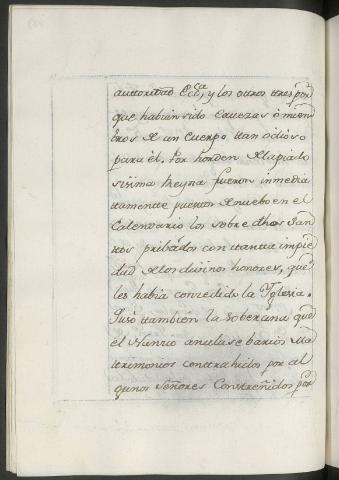 autoridad Ecc.ca, y los otros tres por
que habian sido Cavezas ó miem
bros de un Cuerpo tan odioso
para él. Por horden de la pia lo
sisima Reyna fueron inmedia
tamente puestos de nuebo en el
Calendario los sobre dhos San
tos pribados con tanta impie
dad de los divinos honores, que
les habia concedido la Yglesia.
Quiso tambien la Soberana que
el Nunzio anulase barios Ma
trimonios contrahidos por al
gunos Señores Constreñidos por